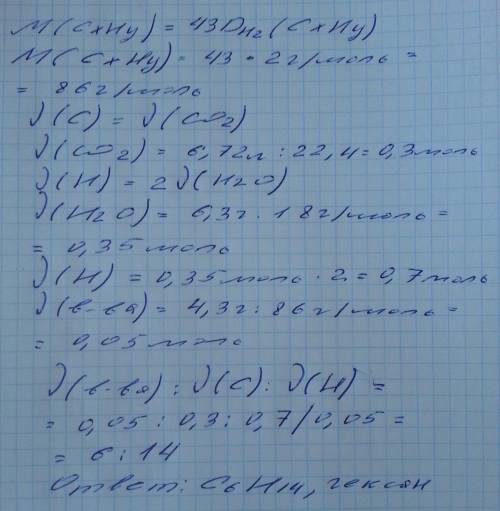 M(CxHy) = 43DH2(CxHy)
M(CxHy) = 43 • 2г/моль =
= 86г/моль
ν(C) = ν(CO2)
ν(CO2) = 6,72л : 22,4 = 0,3моль
ν(H) = 2ν(H2O)
ν(H2O) = 6,3г . 18г/моль =
= 0,35моль
ν(H) = 0,35моль · 2 = 0,7моль
ν(в-ва) = 4,3г : 86г/моль =
= 0,05моль
ν(в-ва) : ν(C) : ν(H) =
= 0,05 : 0,3 : 0,7/0,05 =
= 6 : 14
Ответ: C6H14, гексан